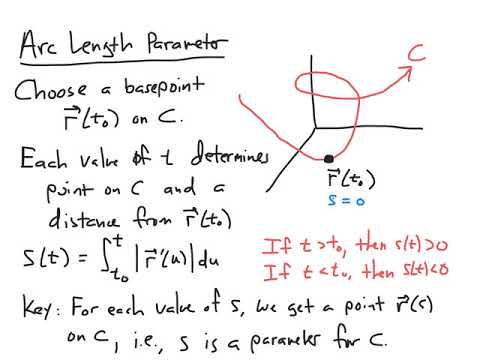 Arc Length Parameter
Choose a basepoint
r⃗(t₀) on C.
Each value of t determines
point on C and a
distance from r⃗(t₀)
s(t) = ∫_{t₀}^{t} |r⃗'(u)| du
C
r⃗(t₀)
s = 0
If t > t₀, then s(t) > 0
If t < t₀, then s(t) < 0
Key: For each value of s, we get a point r⃗(s)
on C, i.e., s is a parameter for C.